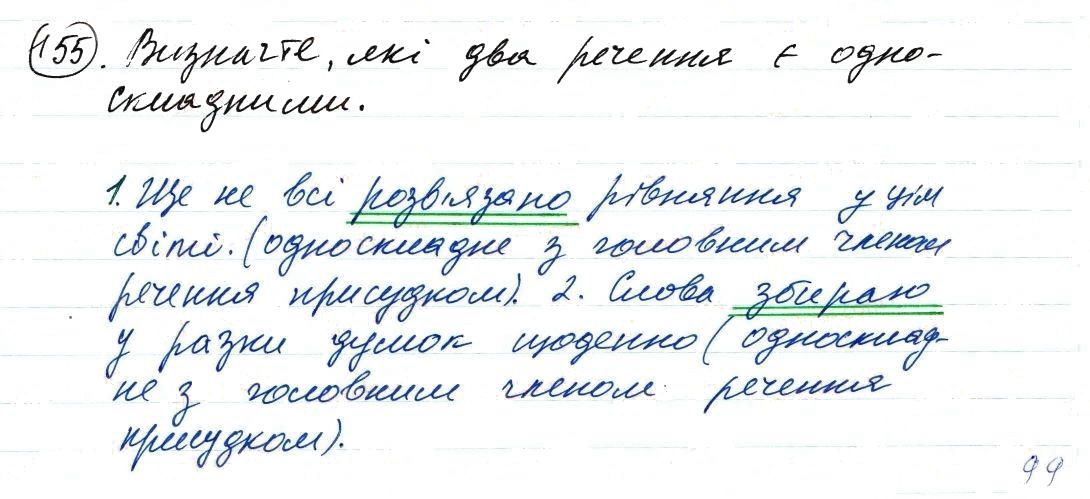 155. Визначте, які два речення є одно-
складними.
1. Ще не всі розв'язано рівняння у цім
світі. (односкладне з головним членом
речення присудком). 2. Слова збираю
у разки думок щоденно (односклад-
не з головним членом речення
присудком).
99